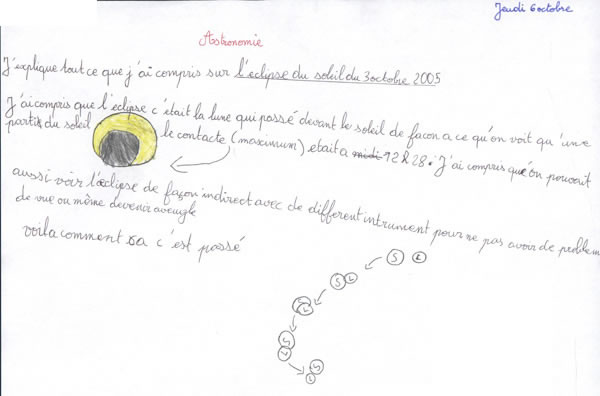 Jeudi 6 octobre
Astronomie
J'explique tout ce que j'ai compris sur l'eclipse du soleil du 3 octobre 2005
J'ai compris que l'eclipse c'était la lune qui passé devant le soleil de facon a ce qu'on voit qu'une
partis du soleil le contacte (maximum) etait a midi 12 h 28. J'ai compris qu'on pouvait
aussi voir l'éclipse de façon indirect avec de different intrument pour ne pas avoir de problem
de vue ou même devenir aveugle
voila comment sa c'est passé
S L
S L
S L
S L
S L